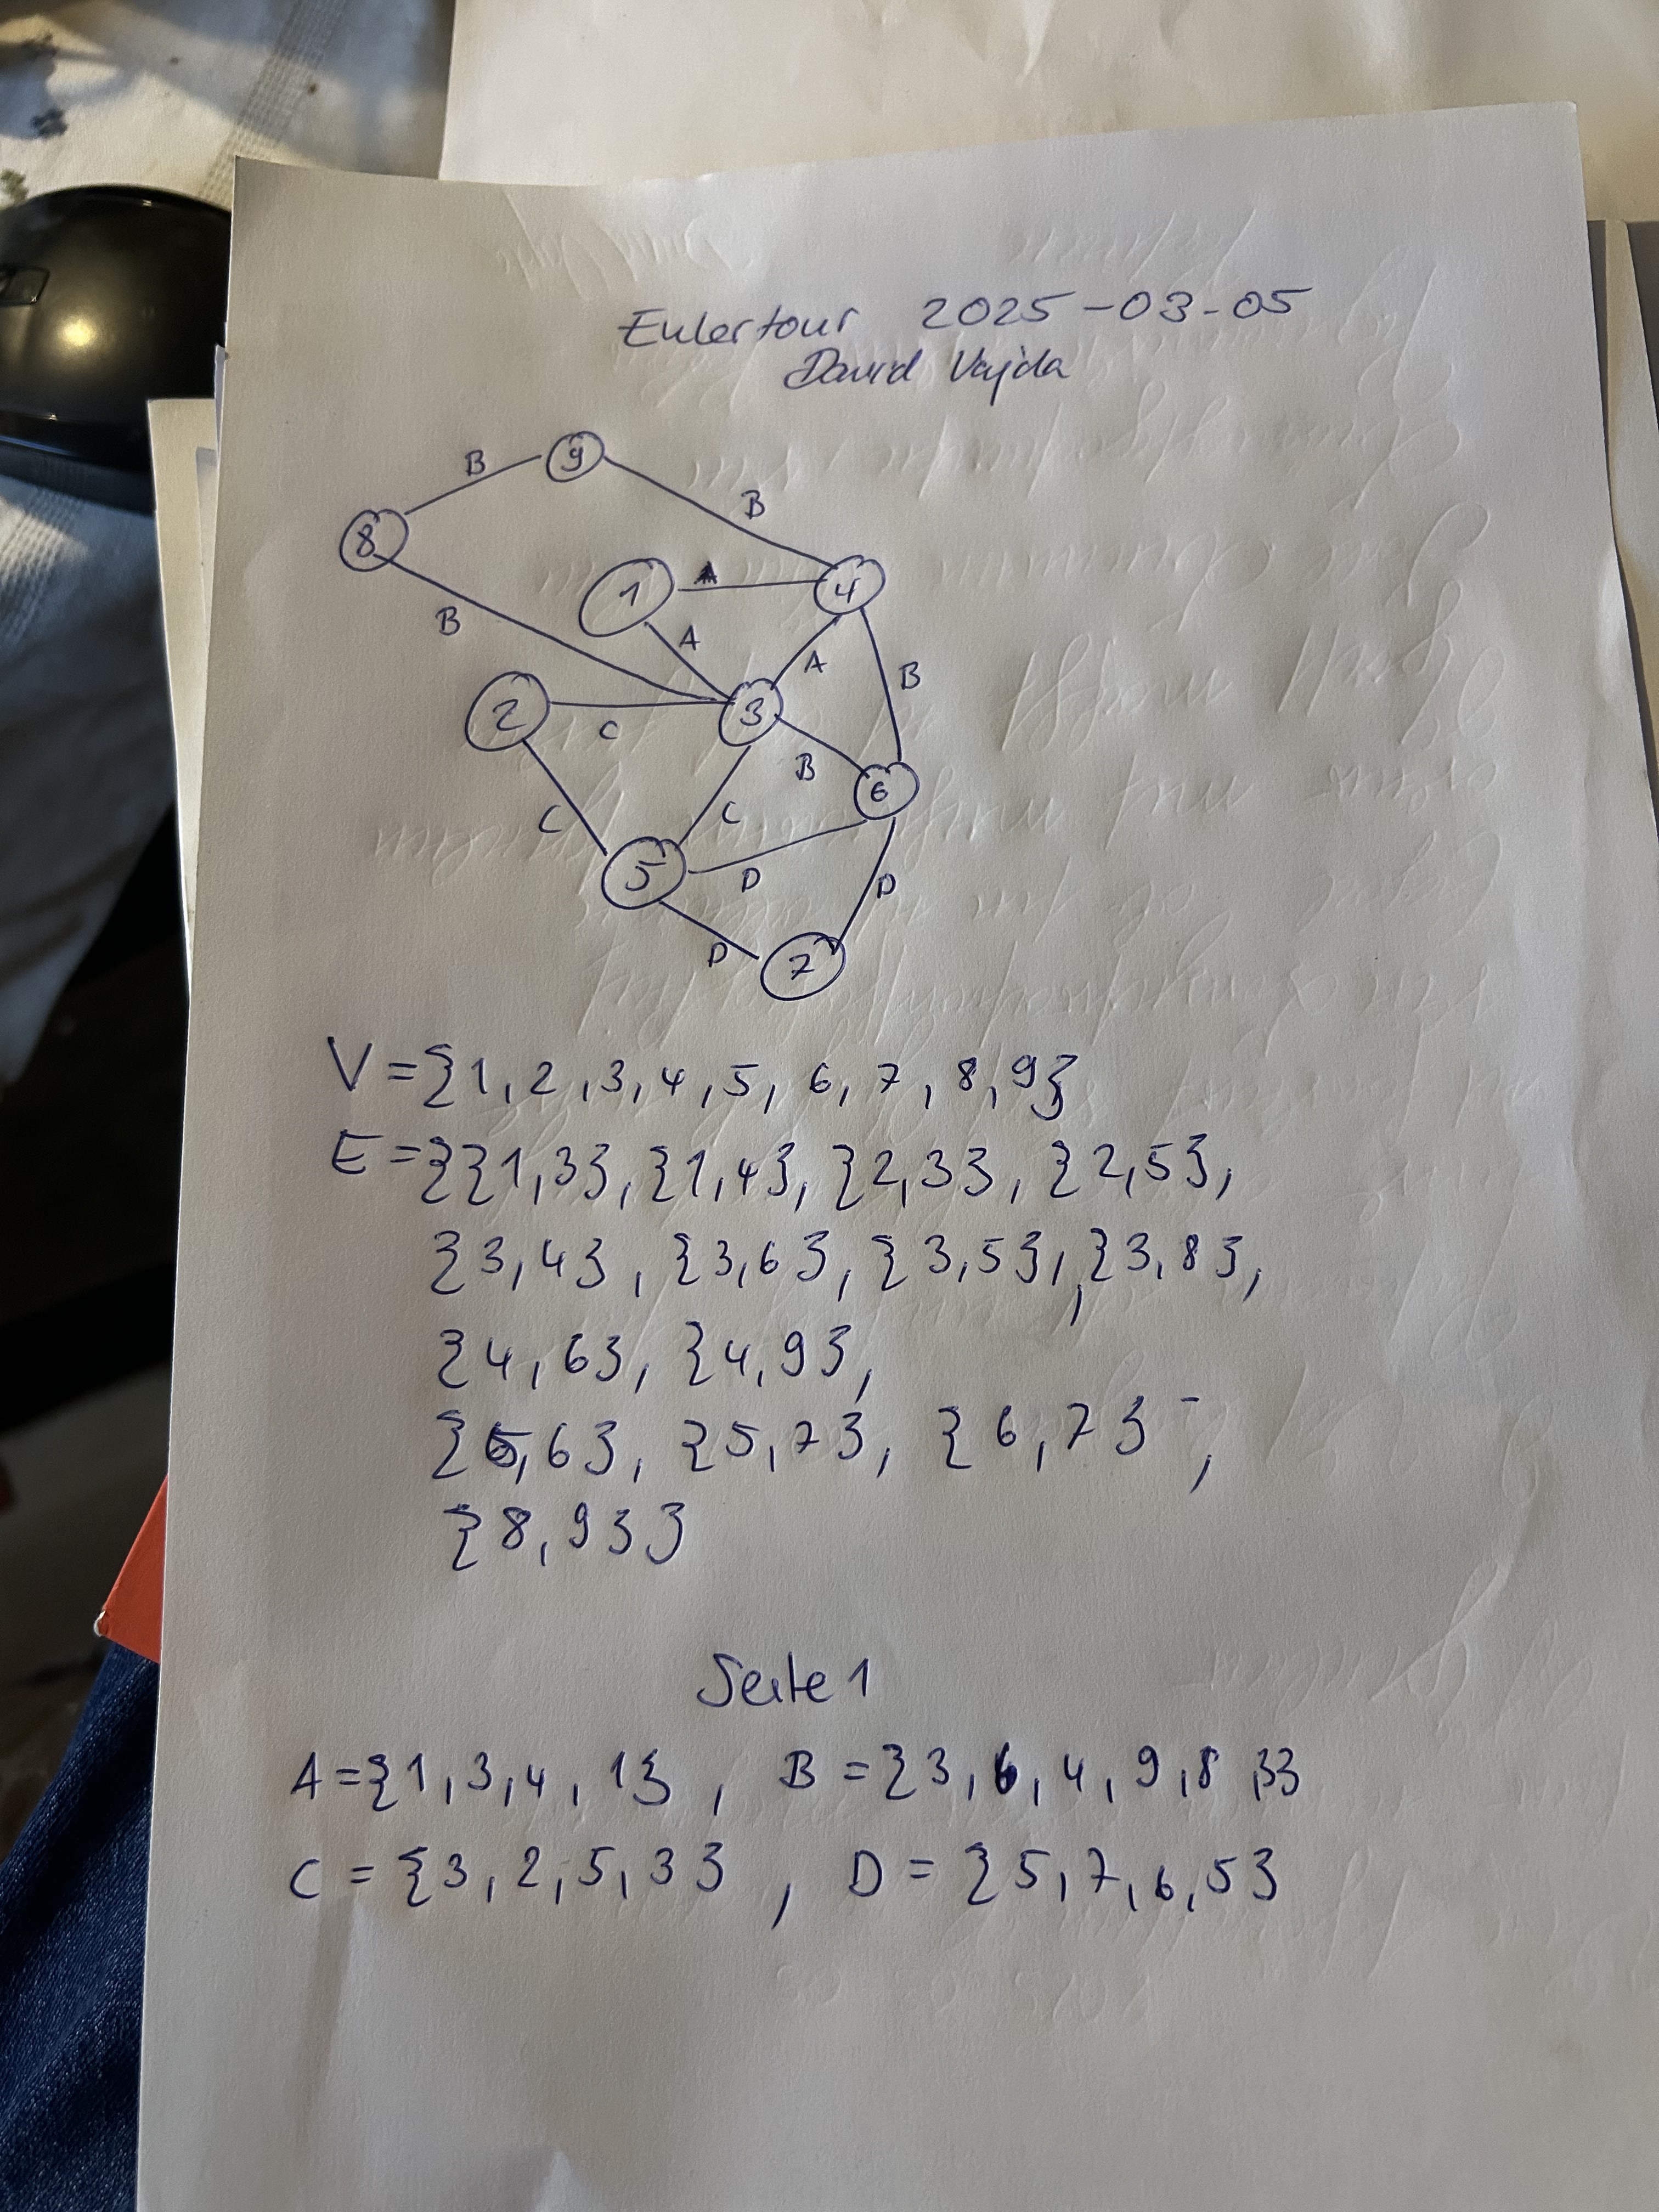 Eulertour 2025-03-05
David Vajda
8
B
9
B
B
2
1
A
A
4
C
C
3
A
B
5
C
B
D
6
D
7
D
V = {1, 2, 3, 4, 5, 6, 7, 8, 9}
E = {{1,3}, {1,4}, {2,3}, {2,5},
{3,4}, {3,6}, {3,5}, {3,8},
{4,6}, {4,9},
{5,6}, {5,7}, {6,7},
{8,9}}
Seite 1
A = {1,3,4,1}, B = {3,6,4,9,8,3}
C = {3,2,5,3}, D = {5,7,6,5}